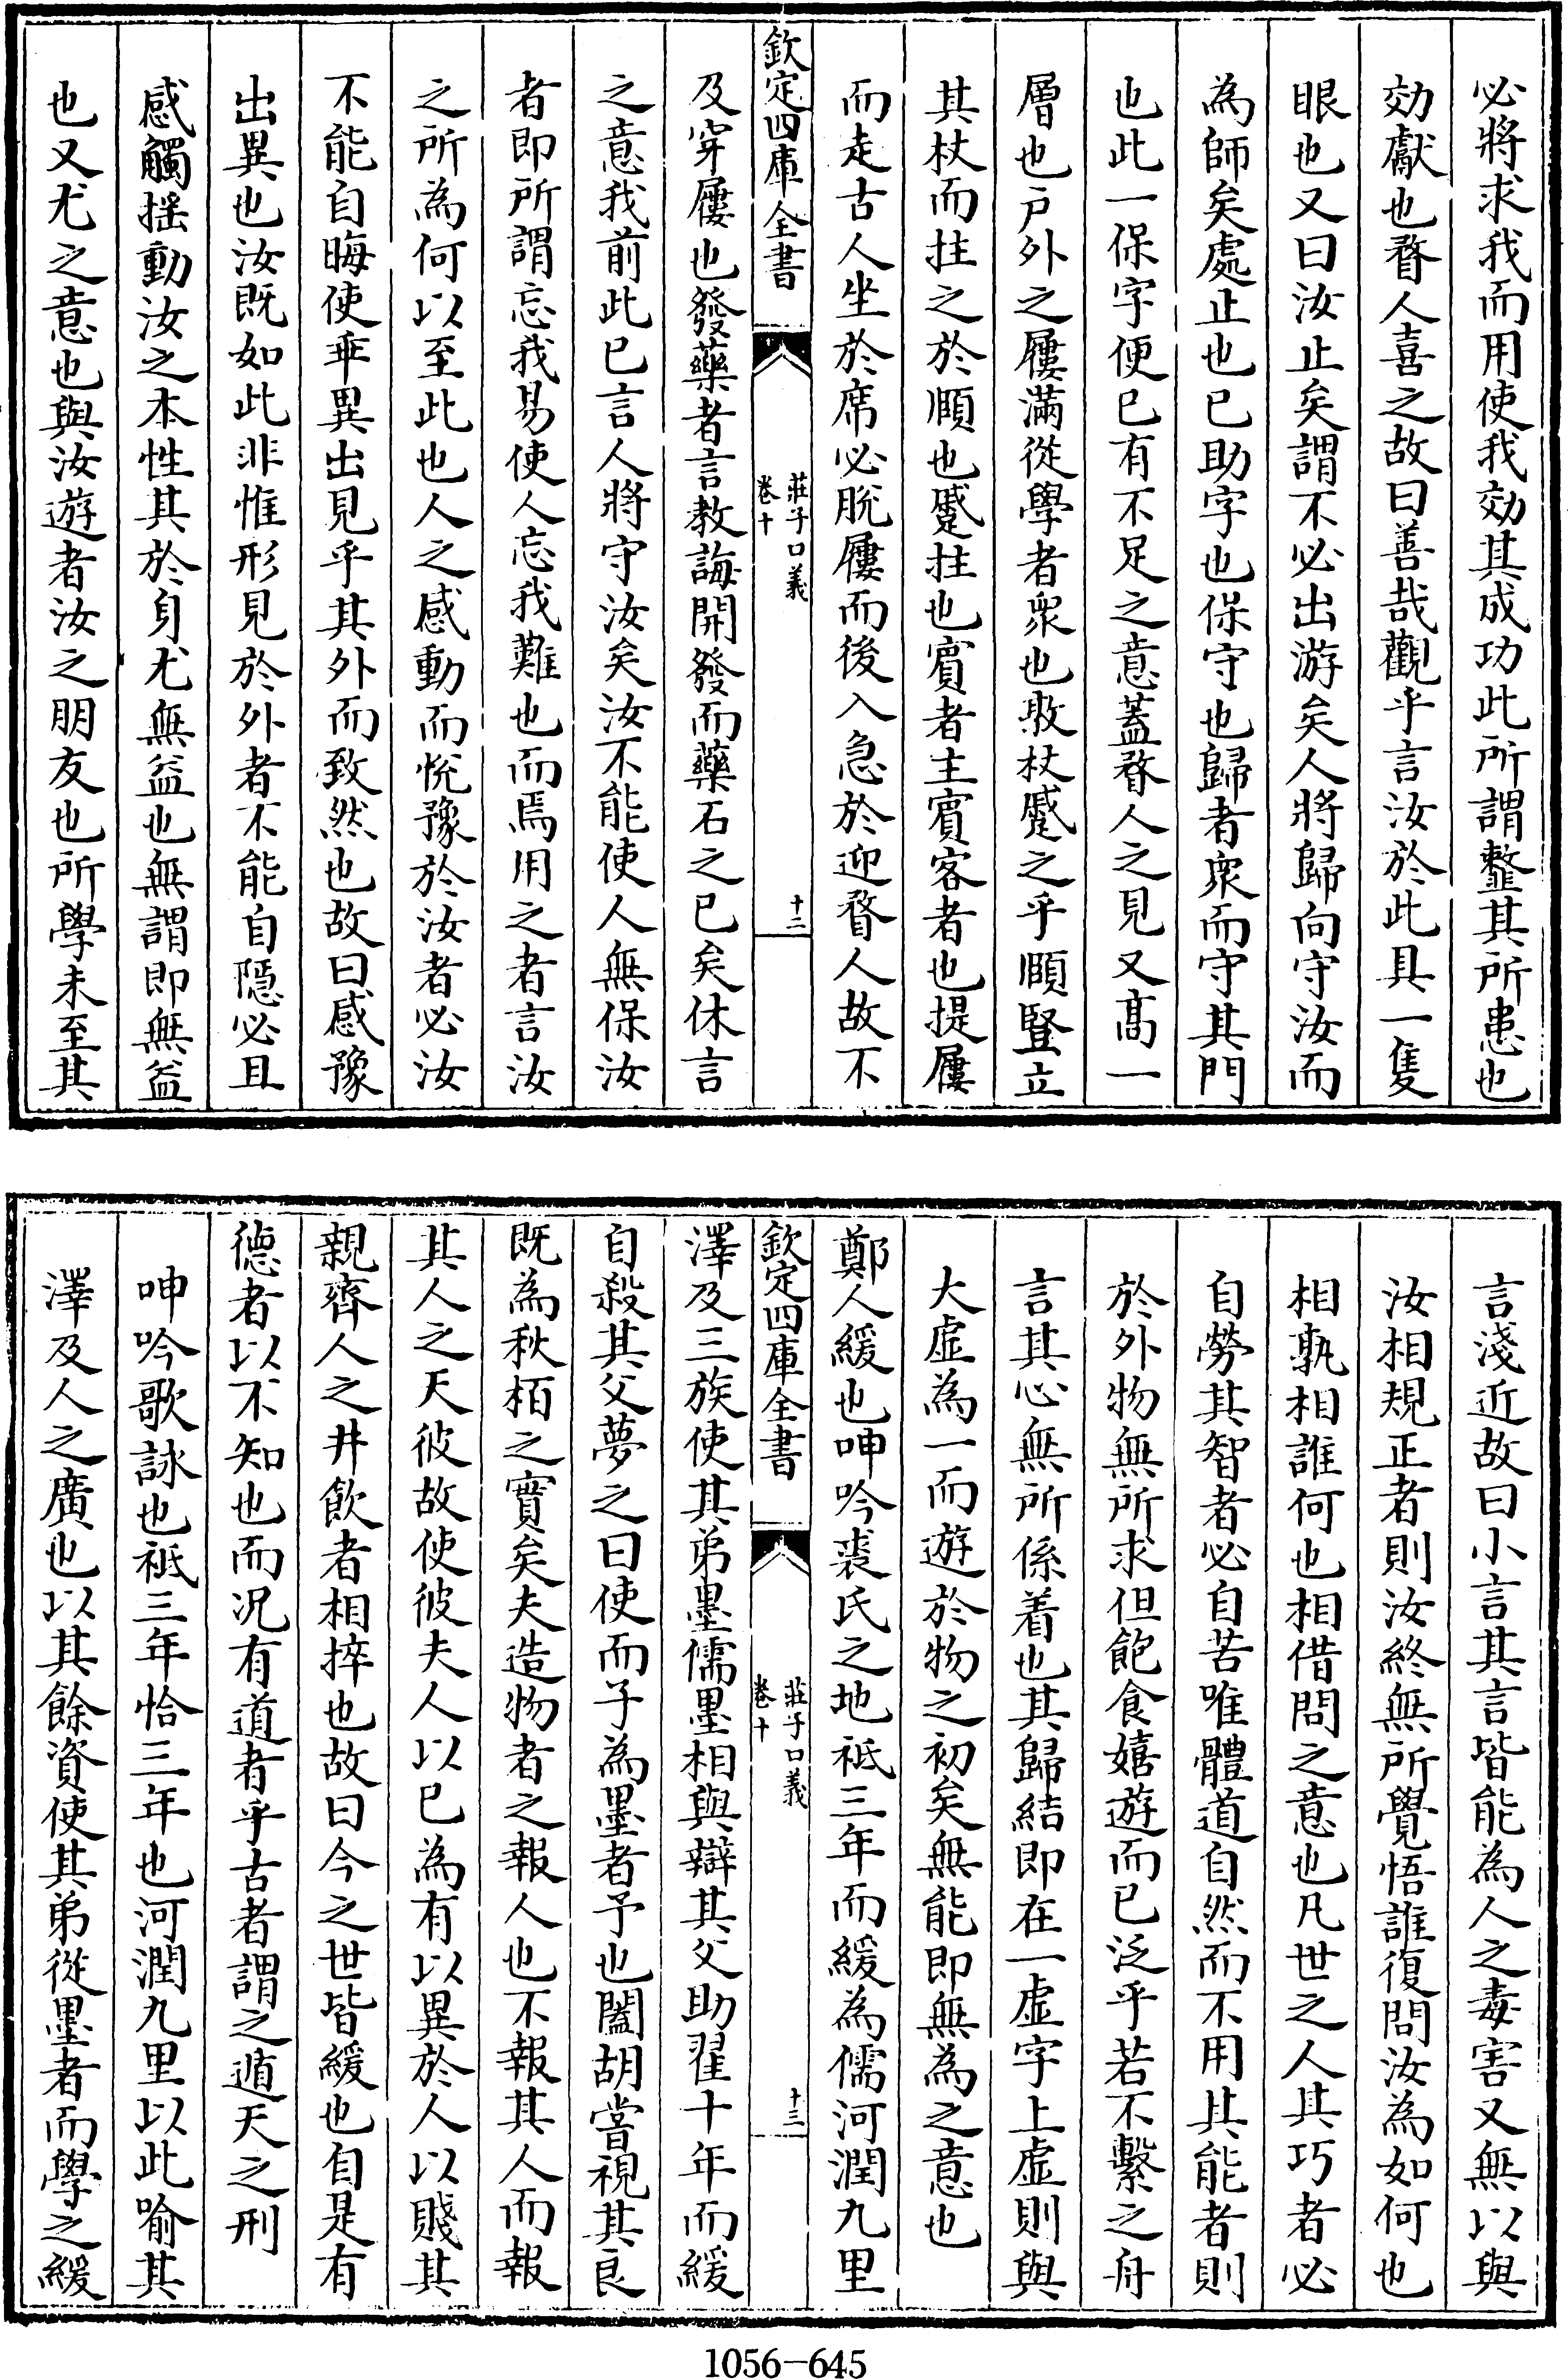 必將求我而用使我効其成功此所謂䪠其所患也
効獻也瞀人喜之故曰善哉觀乎言汝於此具一隻
眼也又曰汝止矣謂不必出游矣人將歸向守汝而
為師矣處止也已助字也保守也歸者衆而守其門
也此一保字便已有不足之意蓋瞀人之見又髙一
層也戸外之屨滿從學者衆也敦杖蹙之乎頤豎立
其杖而拄之於頤也蹙拄也賓者主賓客者也提屨
而走古人坐於席必脫屨而後入急於迎瞀人故不
欽定四庫全書
莊子口義
卷十
十二
及穿屨也發藥者言教誨開發而藥石之已矣休言
之意我前此已言人將守汝矣汝不能使人無保汝
者即所謂忘我易使人忘我難也而焉用之者言汝
之所為何以至此也人之感動而悅豫於汝者必汝
不能自晦使乖異出見乎其外而致然也故曰感豫
出異也汝既如此非惟形見於外者不能自隱必且
感觸搖動汝之本性其於身尤無益也無謂即無益
也又尤之意也與汝遊者汝之朋友也所學未至其
言淺近故曰小言其言皆能為人之毒害又無以與
汝相規正者則汝終無所覺悟誰復問汝為如何也
相孰相誰何也相借問之意也凡世之人其巧者必
自勞其智者必自苦唯體道自然而不用其能者則
於外物無所求但飽食嬉遊而已泛乎若不繫之舟
言其心無所係着也其歸結即在一虛字上虛則與
大虛為一而遊於物之初矣無能即無為之意也
鄭人緩也呻吟裘氏之地衹三年而緩為儒河潤九里
欽定四庫全書
莊子口義
卷十
十三
澤及三族使其弟墨儒墨相與辯其父助翟十年而緩
自殺其父夢之曰使而子為墨者予也闔胡嘗視其良
既為秋栢之實矣夫造物者之報人也不報其人而報
其人之天彼故使彼夫人以已為有以異於人以賤其
親齊人之井飲者相捽也故曰今之世皆緩也自是有
德者以不知也而况有道者乎古者謂之遁天之刑
呻吟歌詠也衹三年恰三年也河潤九里以此喻其
澤及人之廣也以其餘資使其弟從墨者而學之緩
1056-645